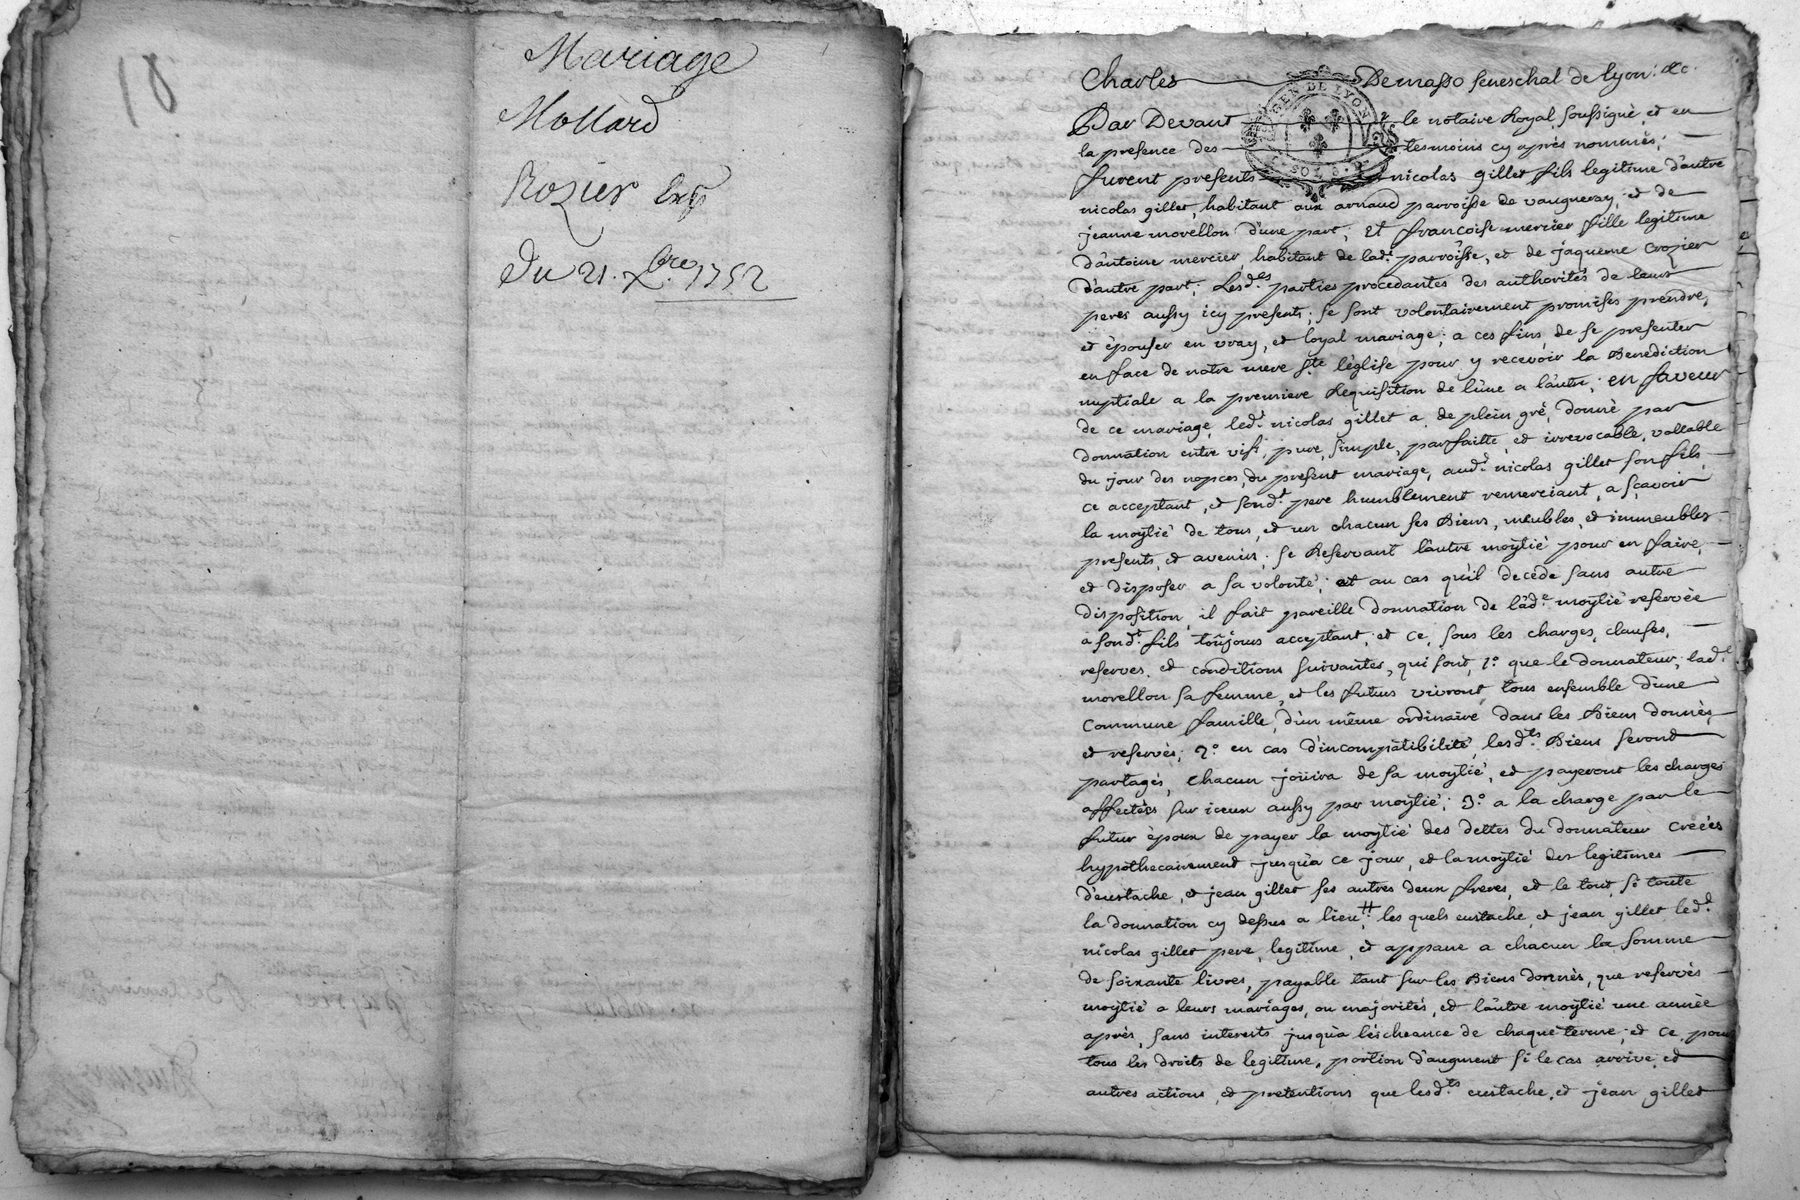 18
Mariage
Mollard
Rozier
Du 21. Xbre. 1752
Charles Demasso seneschal de lyon. &c.
GEN DE LYON
Par Devant le notaire Royal soussigné, et en
la presence des tesmoins cy après nommés;
furent presents nicolas gillet fils legitime d'autre
nicolas gillet, habitant aux arnaud parroisse de vaugneray; et de
jeanne morellon d'une part; Et francoise mercier fille legitime
d'antoine mercier, habitant de lad: parroisse, et de jaqueme crozier
d'autre part; Lesd.es parties procedantes des authorités de leurs
peres aussy icy presents; se sont volontairement promises prendre,
et épouser en vray, et loyal mariage, a ces fins, de se presenter
en face de notre mere s.te l'église pour y recevoir la Benediction
nuptiale a la premiere Requisition de l'une a l'autre; en faveur
de ce mariage, led.t nicolas gillet a de plein gré, donné par
donnation entre vifs, pure, simple, parfaitte, et irrevocable, vallable
du jour des nopces, du present mariage, aud.t nicolas gillet son fils
ce acceptant, et sond.t pere humblement remerciant, a sçavoir
la moytié de tous, et un chacun ses Biens, meubles, et immeubles
presents, et avenir; se Reservant l'autre moytié pour en faire,
et disposer a sa volonté; et au cas qu'il decede sans autre
disposition, il fait pareille donnation de lad.e moytié reservée
a sond.t fils toûjours acceptant; et ce, sous les charges, clauses,
reserves, et conditions suivantes, qui sont, 1.º que le donnateur, lad.e
morellon sa femme, et les futurs vivront tous ensemble d'une
commune famille, d'un même ordinaire dans les Biens donnés,
et reservés; 2.º en cas d'incompatibilité, lesd.ts Biens seront
partagés, chacun joüira de sa moytié, et payeront les charges
affectées sur iceux aussy par moytié; 3.º a la charge par le
futur époux de payer la moytié des dettes du donnateur creées
hypothecairement jusqu'a ce jour, et la moytié des legitimes
d'eustache, et jean gillet ses autres deux freres, et le tout, si toute
la donnation cy dessus a lieu; les quels eustache, et jean gillet led.t
nicolas gillet pere, legitime, et appane a chacun la somme
de soixante livres, payable tant sur les Biens donnés, que reservés
moytié a leurs mariages, ou majorités, et l'autre moytié une année
après, sans interets jusqu'a l'écheance de chaque terme; et ce, pour
tous les droits de legitime, portion d'augment si le cas arrive, et
autres actions, et pretentions que lesd.ts eustache, et jean gillet